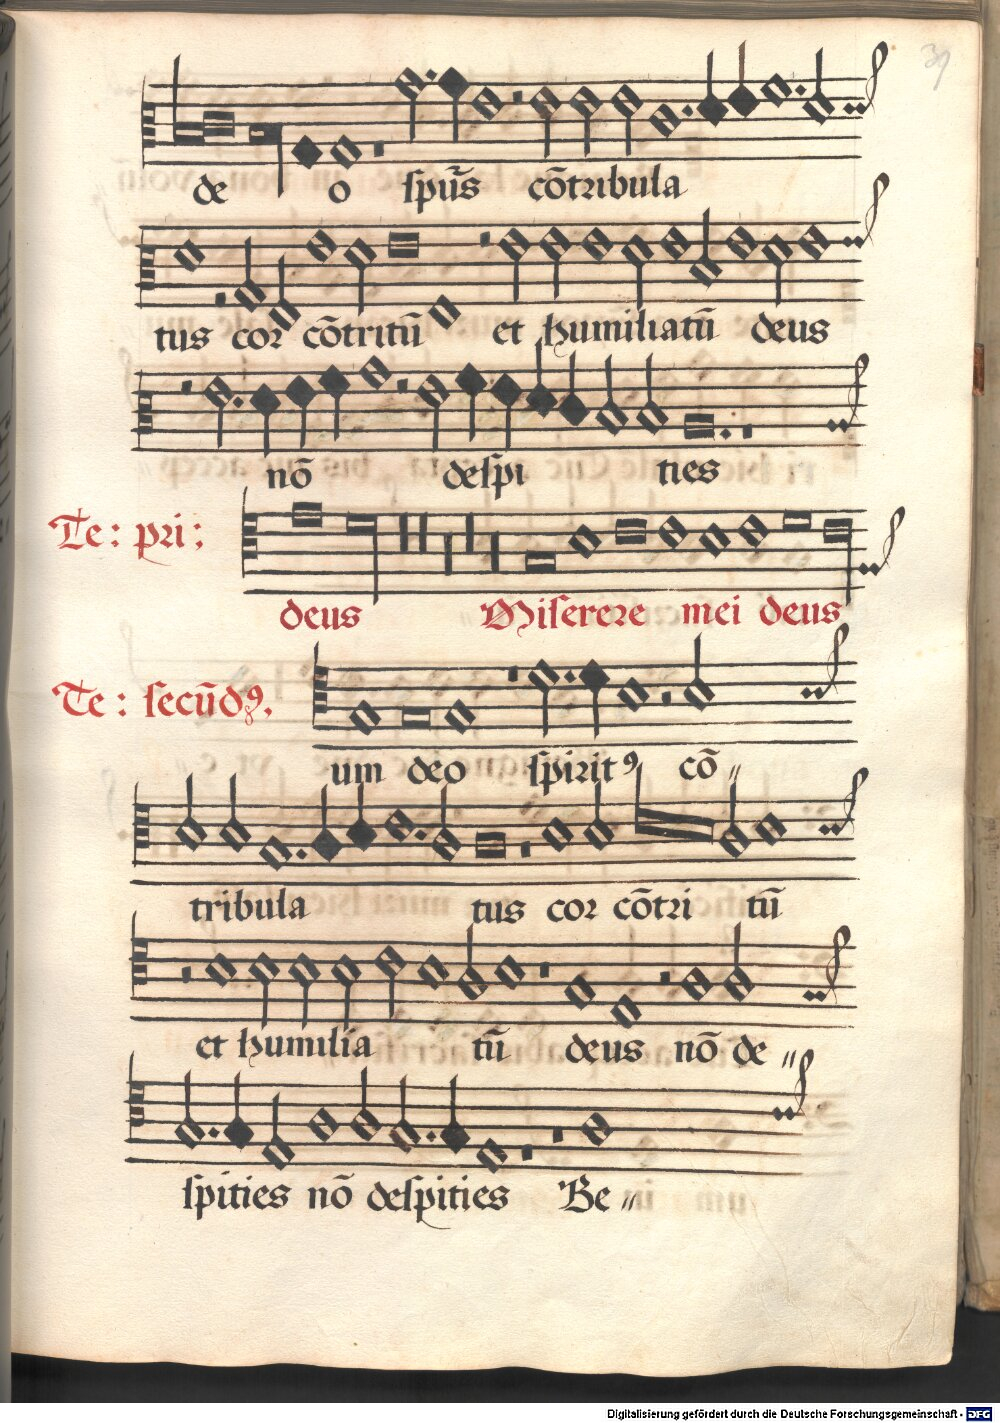 39
de o spūs cōtribula
tus cor cōtritū et humiliatū deus
nō despi ties
Te: pri:
deus Miserere mei deus
Te: secūdꝰ.
um deo spiritꝰ cō〃
tribula tus cor cōtri tū
et humilia tū deus nō de〃
spities nō despities Be〃
Digitalisierung gefördert durch die Deutsche Forschungsgemeinschaft - DFG